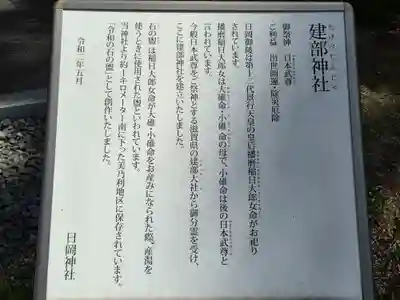 建部神社
御祭神 日本武尊
ご利益 出世開運・除災厄除
日岡御陵は第十二代景行天皇の皇后播磨稲日大郎女命がお祀り
されています。
播磨稲日大郎女は大碓命・小碓命の母で、小碓命は後の日本武尊と
言われています。
今般日本武尊をご祭神とする滋賀県の建部大社から御分霊を受け、
ここに建部神社を建立いたしました。
石の盥は稲日大郎女命が大碓・小碓命をお産みになられた際、産湯を
使うときに使用された盥といわれています。
当神社より約一キロメーター南に下った美乃利地区に保存されています。
「令和の石の盥」として創作いたしました。
令和二年五月
日岡神社